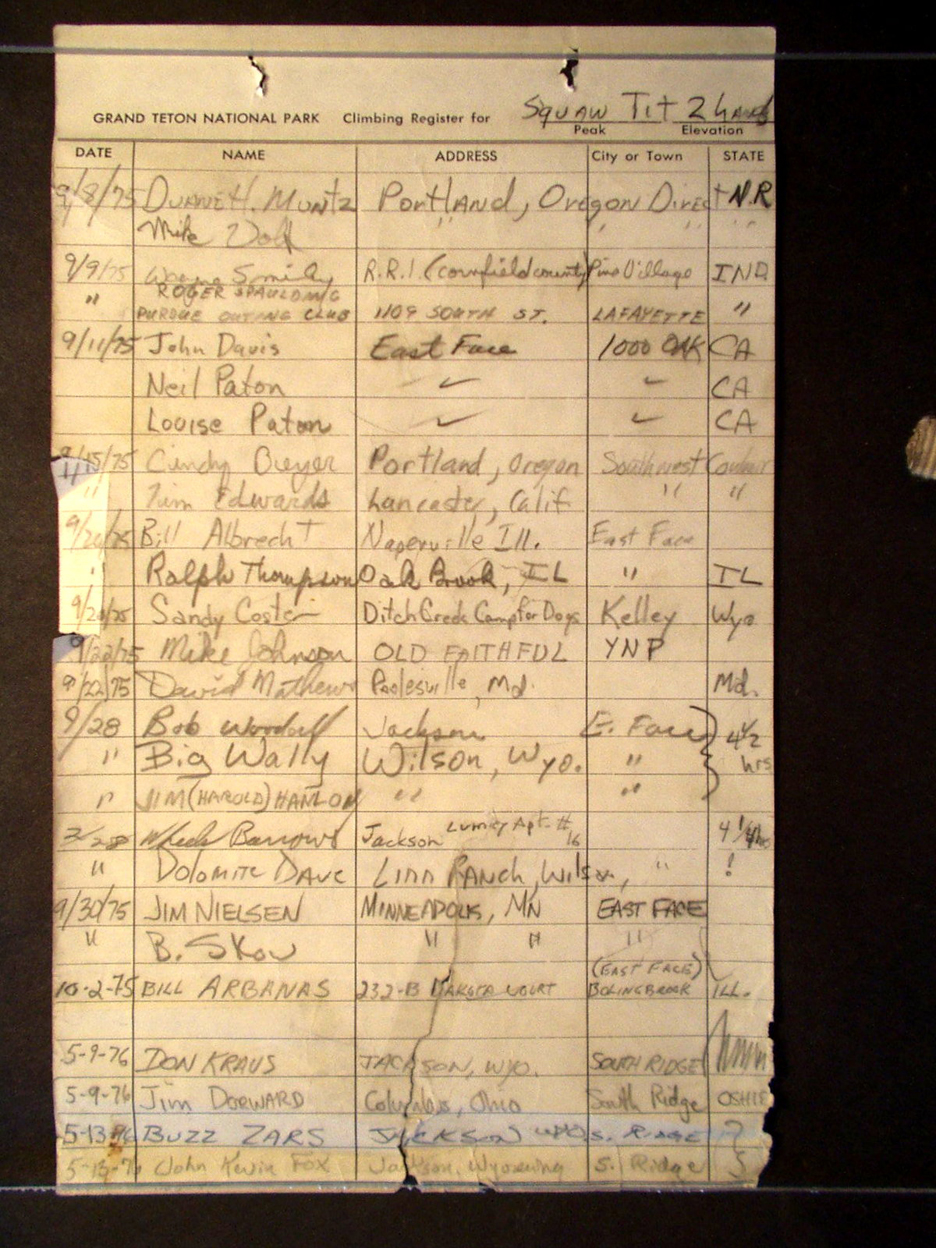 GRAND TETON NATIONAL PARK Climbing Register for Squaw Tit 2
Peak Elevation
DATE NAME ADDRESS City or Town STATE
9/8/75 Duane H. Muntz Portland, Oregon Direct N.R
Mike " " "
9/9/75 Wayne R.R.1 (cornfield county) Pine Village IND
" ROGER SPAULDING
PURDUE OUTING CLUB 1109 SOUTH ST. LAFAYETTE "
9/11/75 John Davis East Face 1000 OAK CA
Neil Paton ✓ ✓ CA
Louise Paton ✓ ✓ CA
9/15/75 Cindy Portland, Oregon Southwest Couloir
" Tim Edwards Lancaster, Calif " "
9/20/75 Bill Albrecht Naperville Ill. East Face
" Ralph Thompson Oak Brook, IL " IL
9/20/75 Sandy Coster Ditch Creek Camp for Dogs Kelley Wyo
9/22/75 Mike Johnson OLD FAITHFUL YNP
9/22/75 David Mathews Poolesville, Md. Md.
9/28 Bob Woodall Jackson E. Face } 4 1/2 hrs
" Big Wally Wilson, Wyo. "
" JIM (HAROLD) HANLON " " "
Barrows Jackson Apt. # 16 4 1/4 hrs
" Dolomite Dave Linn Ranch, Wilson, " !
9/30/75 JIM NIELSEN MINNEAPOLIS, MN EAST FACE
" B. Skow " " "
(EAST FACE)
10-2-75 BILL ARBANAS 232-B DAKOTA COURT BOLINGBROOK ILL.
5-9-76 DON KRAUS JACKSON, WYO. SOUTH RIDGE
5-9-76 Jim DORWARD Columbus, Ohio South Ridge
5-13-76 BUZZ ZARS JACKSON WYO S. RIDGE
5-13-76 John Kevin Fox Jackson, Wyoming S. Ridge